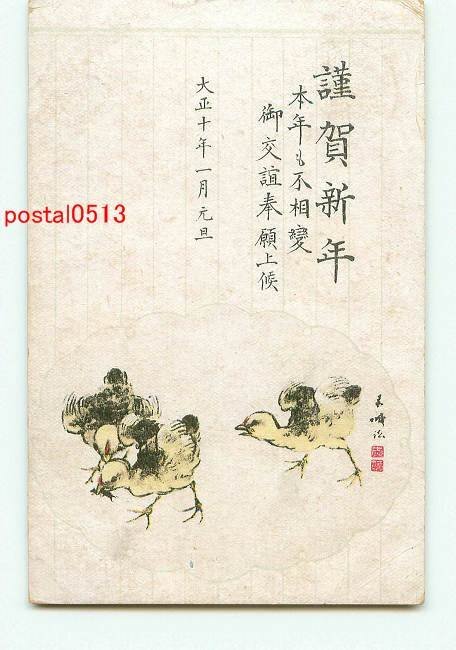 謹賀新年
本年も不相變
御交誼奉願上候
大正十年一月元旦
postal0513